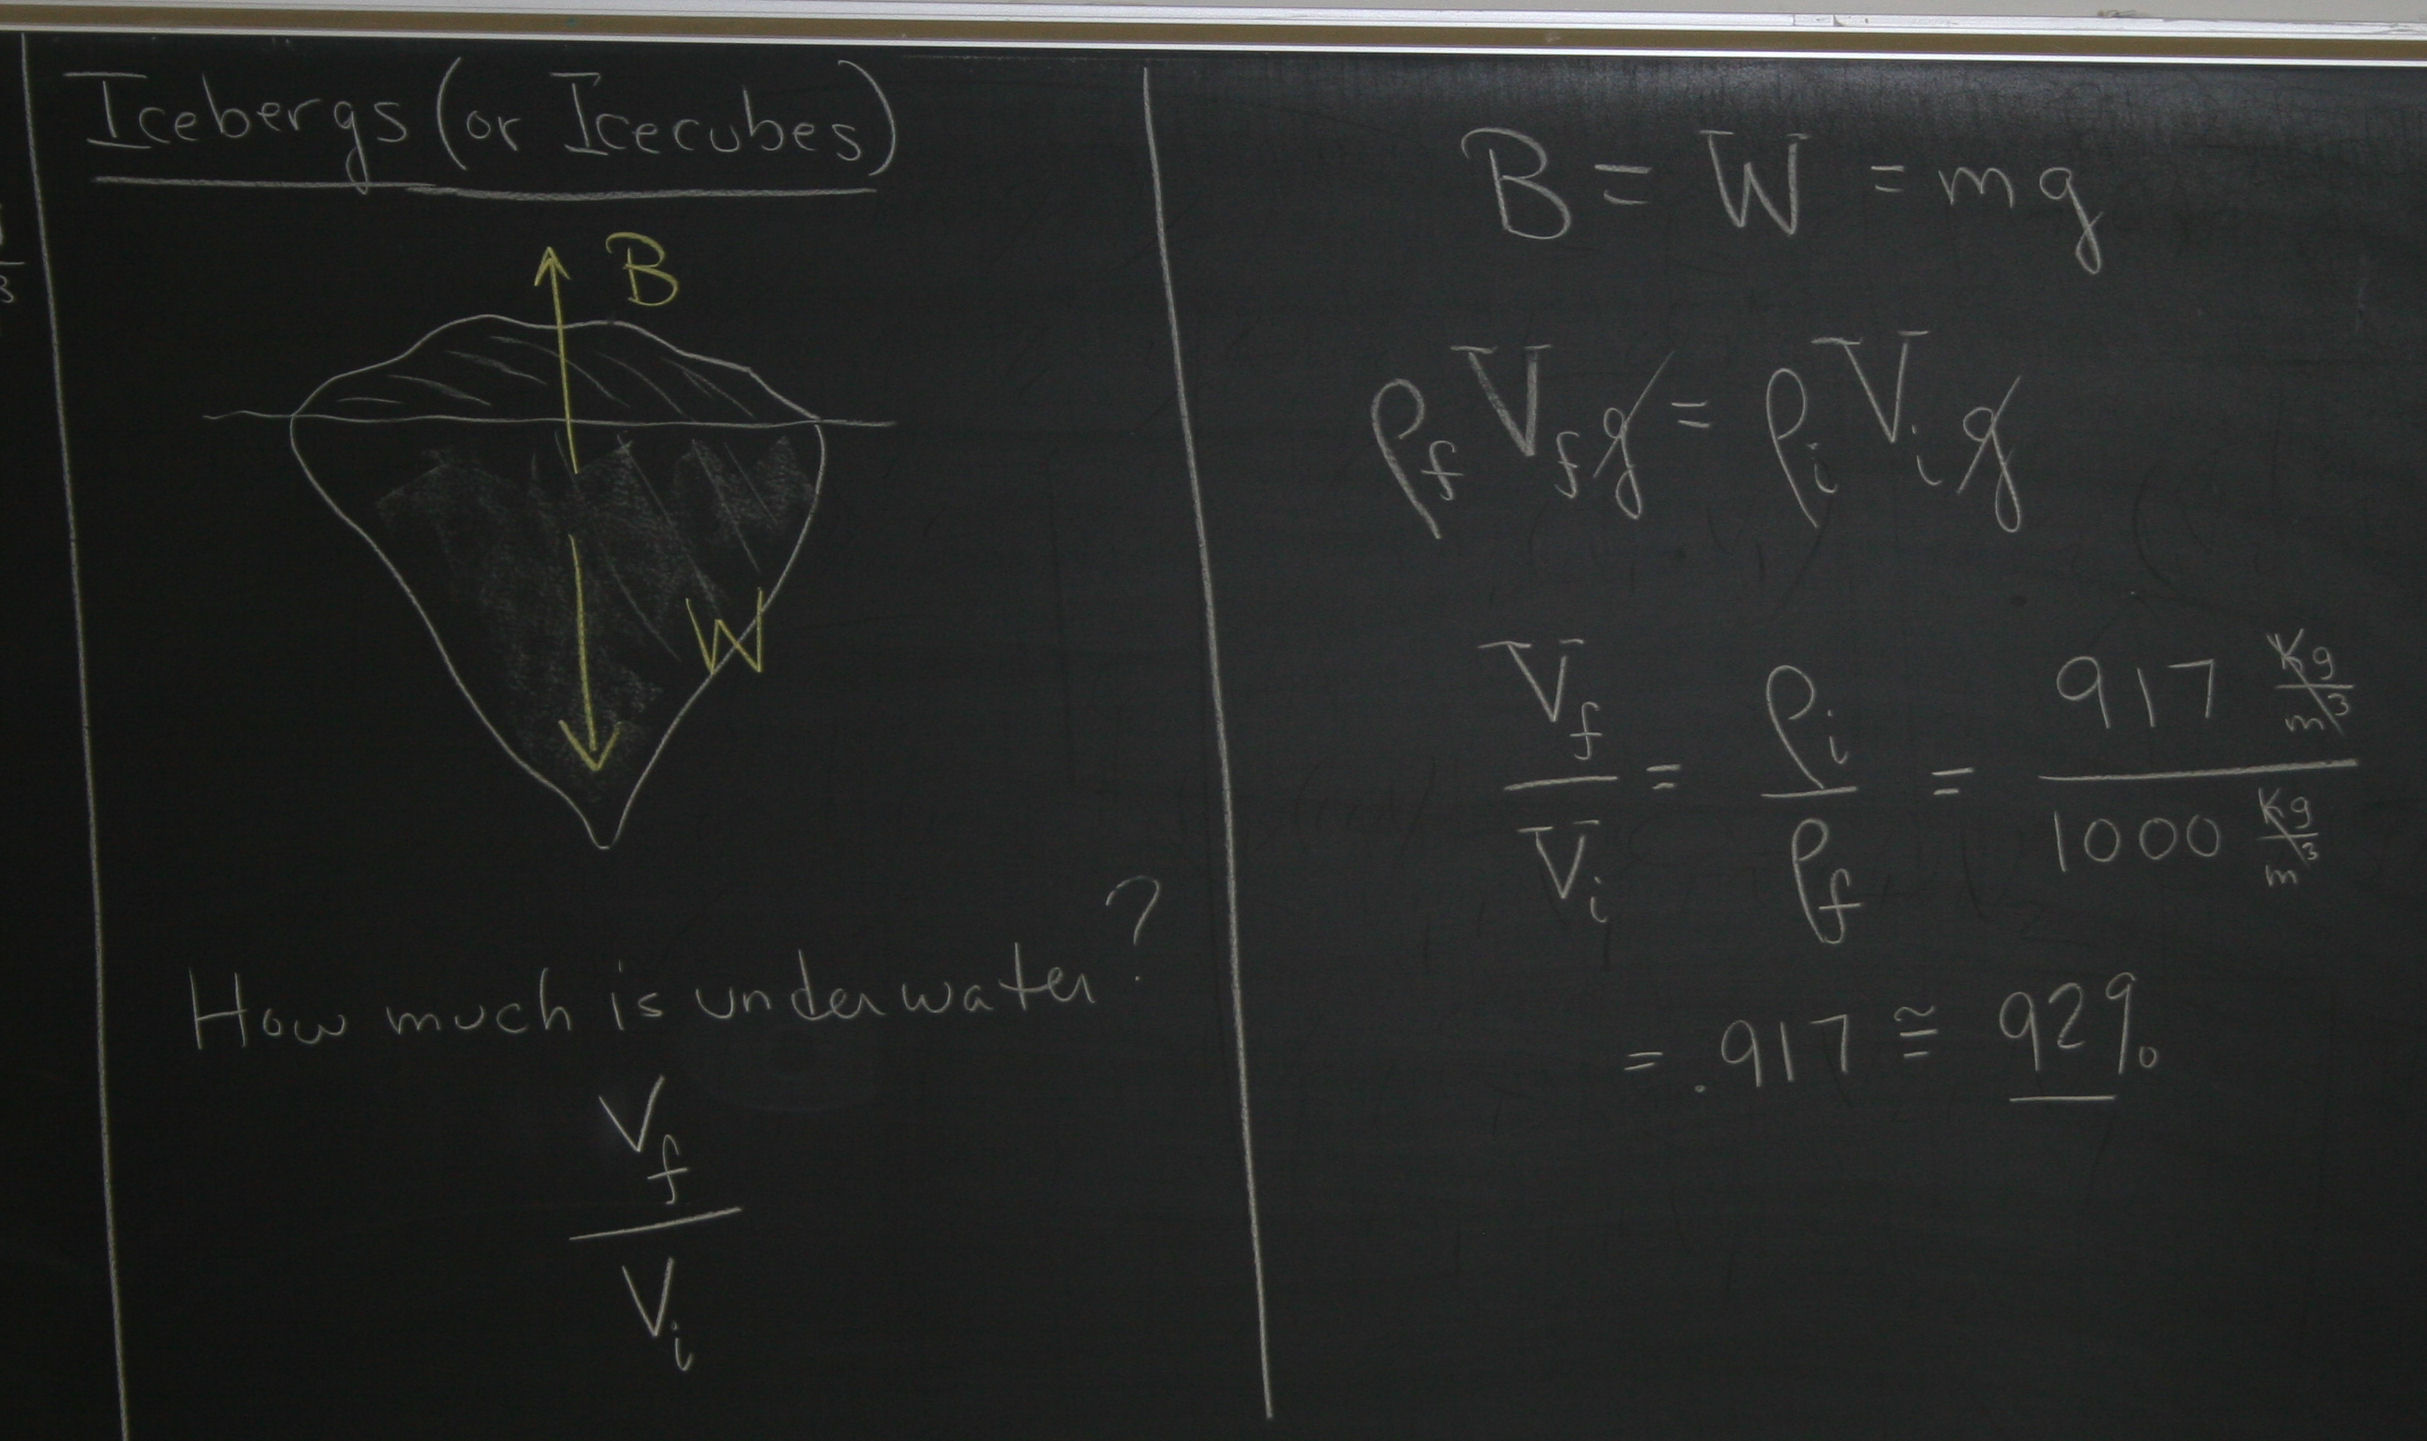 Icebergs (or Icecubes)
B
W
How much is underwater?
V_f
V_i
B = W = mg
ρ_f V_f g = ρ_i V_i g
V_f / V_i = ρ_i / ρ_f = 917 Kg/m³ / 1000 Kg/m³
= .917 ≅ 92%